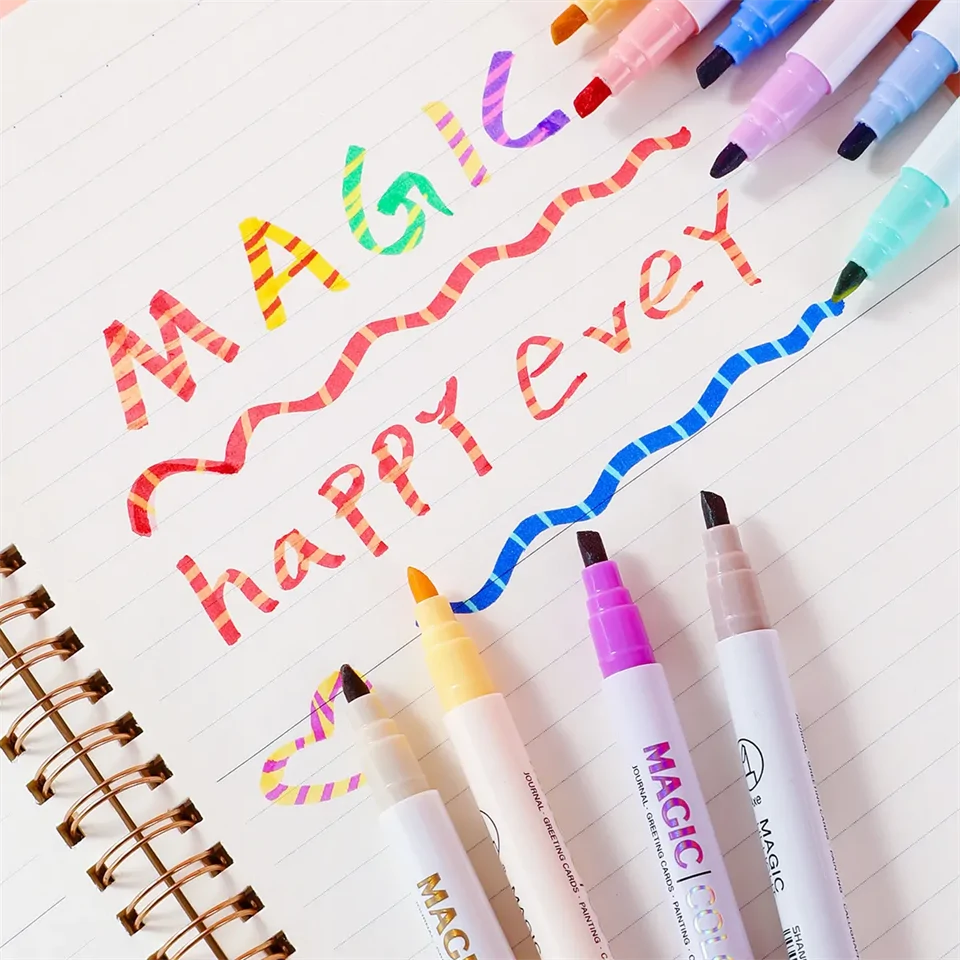 MAGIC
happy every
MAGIC
JOURNAL · GREETING CARDS · PAINTING
MAGIC | COLO
JOURNAL · GREETING CARDS · PAINTING
MAGIC